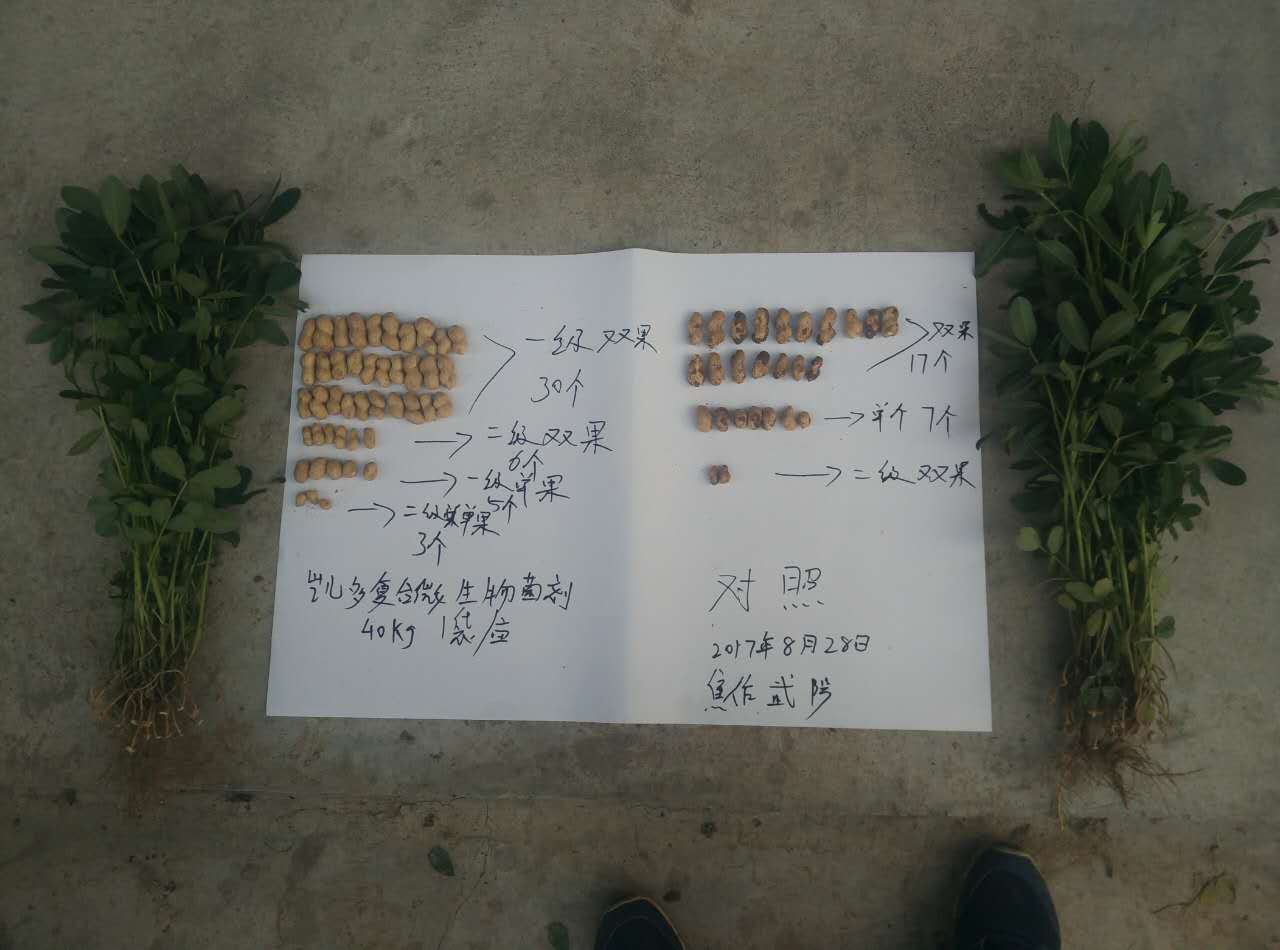 一级双果
30个
二级双果
6个
一级单果
5个
二级单果
3个
凯多复合微生物菌剂
40Kg 1袋/亩
双果
17个
单个 7个
二级双果
对照
2017年8月28日
焦作武陟